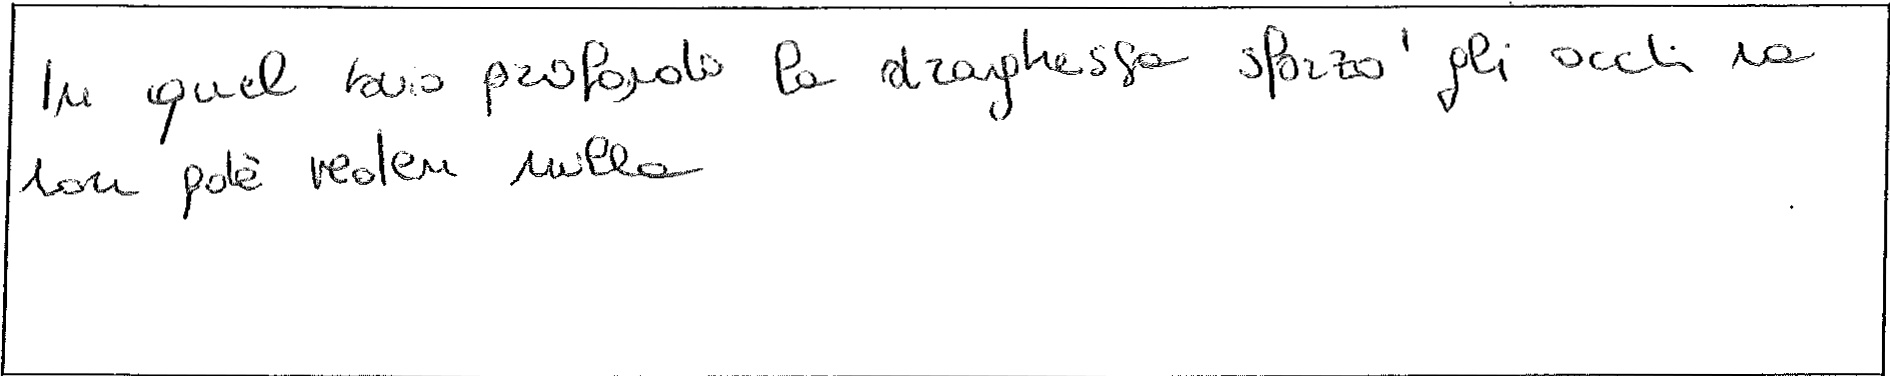 In quel buio profondo la draghessa sforzò gli occhi ma
non potè veder nulla